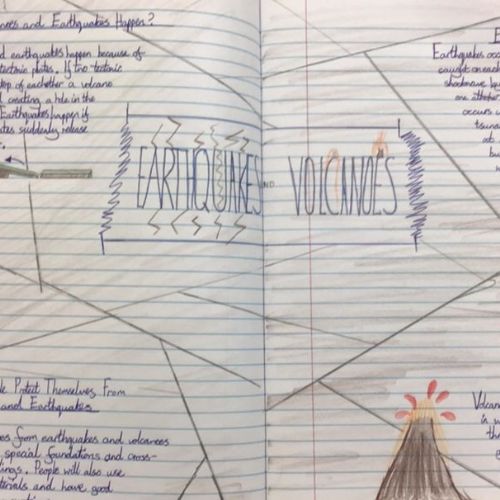 noes and Earthquakes Happen?
d earthquakes happen because of
tectonic plates. If two tectonic
top of eachother a volcano
creating a hole in the
Earthquakes happen if
ates suddenly release
EARTHQUAKES AND VOLCANOES
E
Earthquakes occ
caught on each
shockwave
are
occurs
tsuna
le Protect Themselves From
and Earthquakes
es from earthquakes and volcanoes
special foundations and cross-
ings. People will also use
terials and have good
Volcan
in w
the